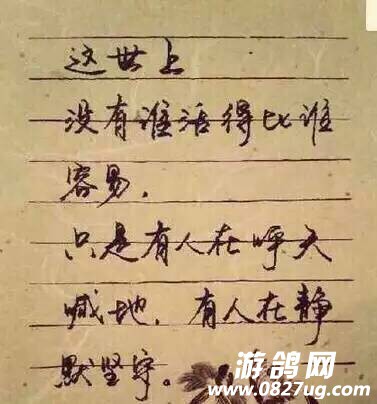 这世上
没有谁活得比谁
容易，
只是有人在呼天
喊地，有人在静
默坚守。
游鸽网
www.0827ug.com